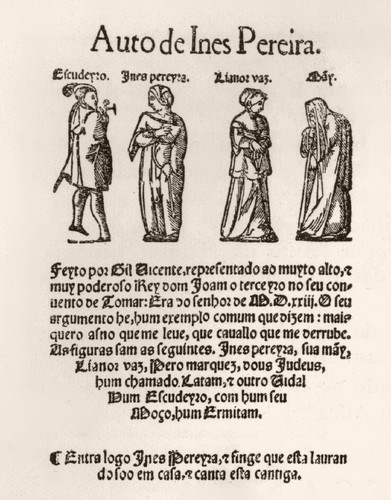 Auto de Ines Pereira.
Escudeyro. Ines pereyra. Lianor vaz. Mãy.
Feyto por Gil Vicente, representado ao muyto alto, &
muy poderoso Rey dom Joam o terceyro no seu con
uento de Tomar: Era do senhor de M.D.xxiii. O seu
argumento he, hum exemplo comum que dizem: mais
quero asno que me leue, que cauallo que me derrube.
As figuras sam as seguintes. Ines pereyra, sua mãy,
Lianor vaz, Pero marquez, dous Judeus,
hum chamado. Latam, & outro Uidal
Hum Escudeyro, com hum seu
Moço, hum Ermitam.
¶ Entra logo Ines Pereyra, & finge que esta lauran
do soo em casa, & canta esta cantiga.